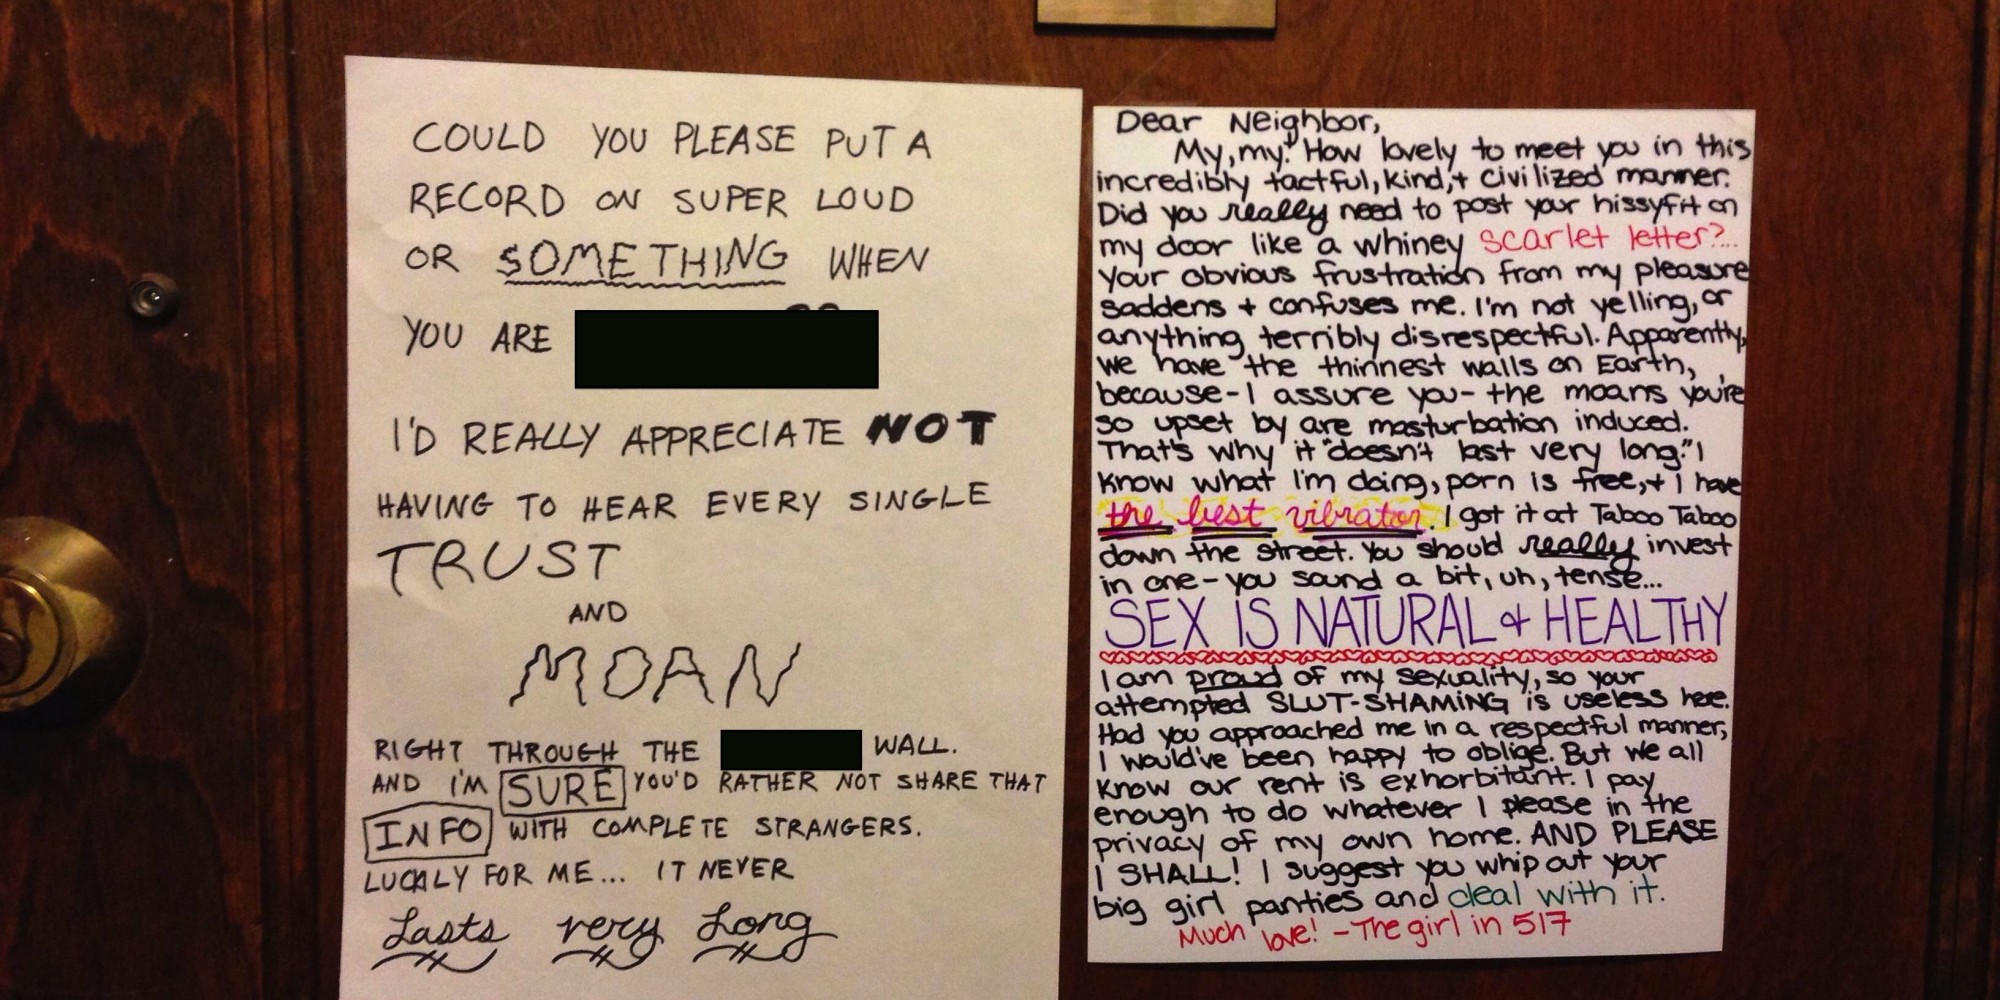 COULD YOU PLEASE PUT A
RECORD ON SUPER LOUD
OR SOMETHING WHEN
YOU ARE
I'D REALLY APPRECIATE NOT
HAVING TO HEAR EVERY SINGLE
TRUST
AND
MOAN
RIGHT THROUGH THE WALL.
AND I'M SURE YOU'D RATHER NOT SHARE THAT
INFO WITH COMPLETE STRANGERS.
LUCKLY FOR ME... IT NEVER
Lasts very Long
Dear Neighbor,
My, my! How lovely to meet you in this
incredibly tactful, kind, + civilized manner.
Did you really need to post your hissyfit on
my door like a whiney scarlet letter?...
Your obvious frustration from my pleasure
saddens + confuses me. I'm not yelling, or
anything terribly disrespectful. Apparently,
we have the thinnest walls on Earth,
because - I assure you - the moans you're
so upset by are masturbation induced.
That's why it "doesn't last very long." I
know what I'm doing, porn is free, + I have
the best vibrator. I got it at Taboo Taboo
down the street. You should really invest
in one - you sound a bit, uh, tense...
SEX IS NATURAL & HEALTHY
I am proud of my sexuality, so your
attempted SLUT-SHAMING is useless here.
Had you approached me in a respectful manner,
I would've been happy to oblige. But we all
know our rent is exhorbitant. I pay
enough to do whatever I please in the
privacy of my own home. AND PLEASE
I SHALL! I suggest you whip out your
big girl panties and deal with it.
Much love! - The girl in 517